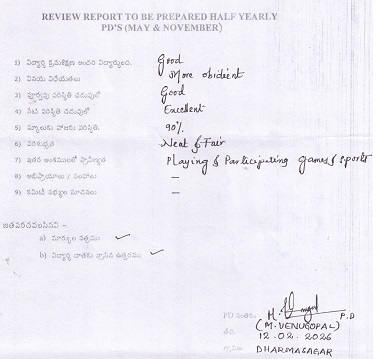 REVIEW REPORT TO BE PREPARED HALF YEARLY
PD'S (MAY & NOVEMBER)
1) విద్యార్థి క్రమశిక్షణ ఇందరి విద్యార్థులది. Good
2) వినయ విధేయతలు More obidient
3) పూర్వపు పరిస్థితి చదువులో Good
4) నేటి పరిస్థితి చదువులో Excellent
5) స్కూలుకు హాజరు పరిస్థితి. 90%
6) పరిశుభ్రత Neat & Fair
7) ఇతర అంశములలో ప్రావీణ్యత Playing & Participating games & sports
8) అభిప్రాయాలు / సలహాలు —
9) కమిటీ సభ్యుల సూచనలు —
జతపరచవలసినవి –
a) మార్కుల పత్రము ✓
b) విద్యార్థి దాతకు వ్రాసిన ఉత్తరము ✓
PD సంతకం P.D
(M. VENUGOPAL)
తేది. 12.02.2026
గ్రామం DHARMASAGAR